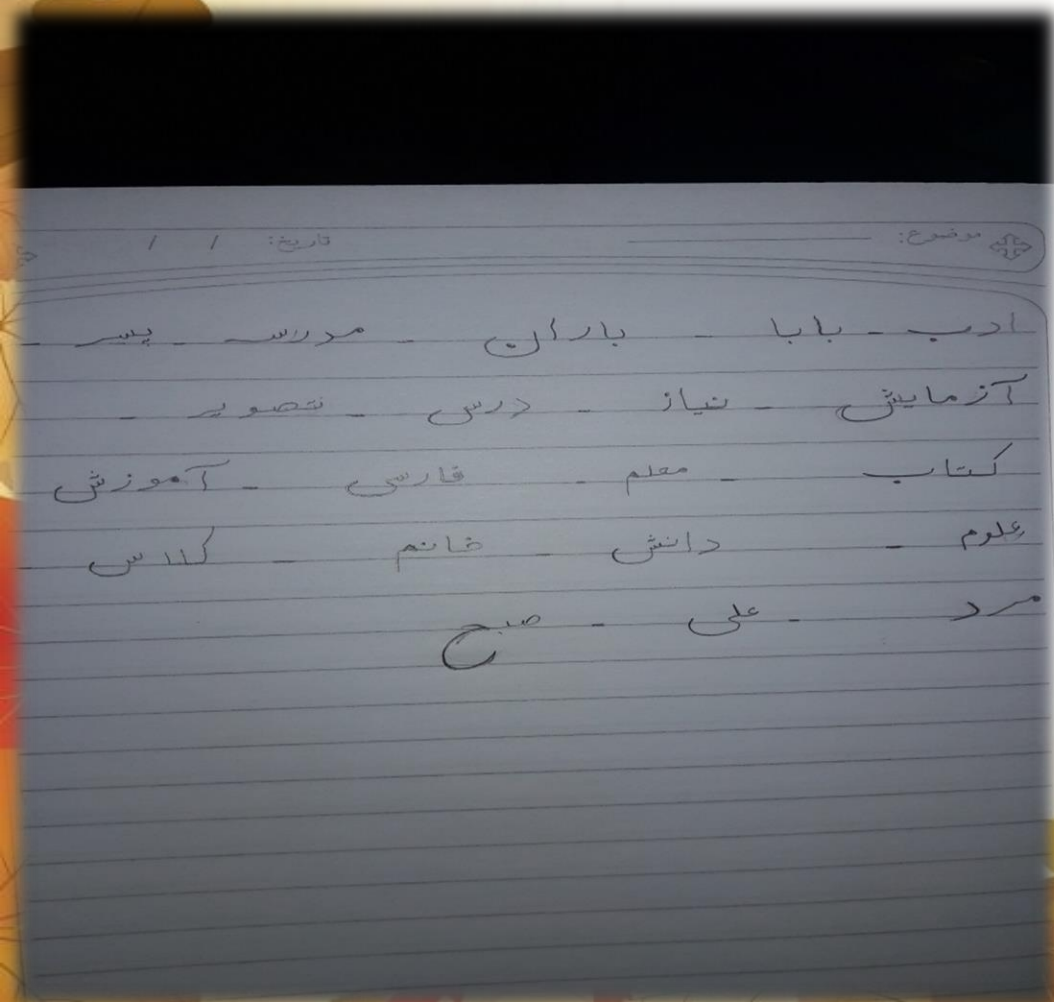 موضوع: تاریخ: / /
ادب - بابا - باران - مدرسه - پسر -
آزمایش - نیاز - درس - تصویر -
کتاب - معلم - فارسی - آموزش
علوم - دانش - خانم - کلاس -
مرد - علی - صبح